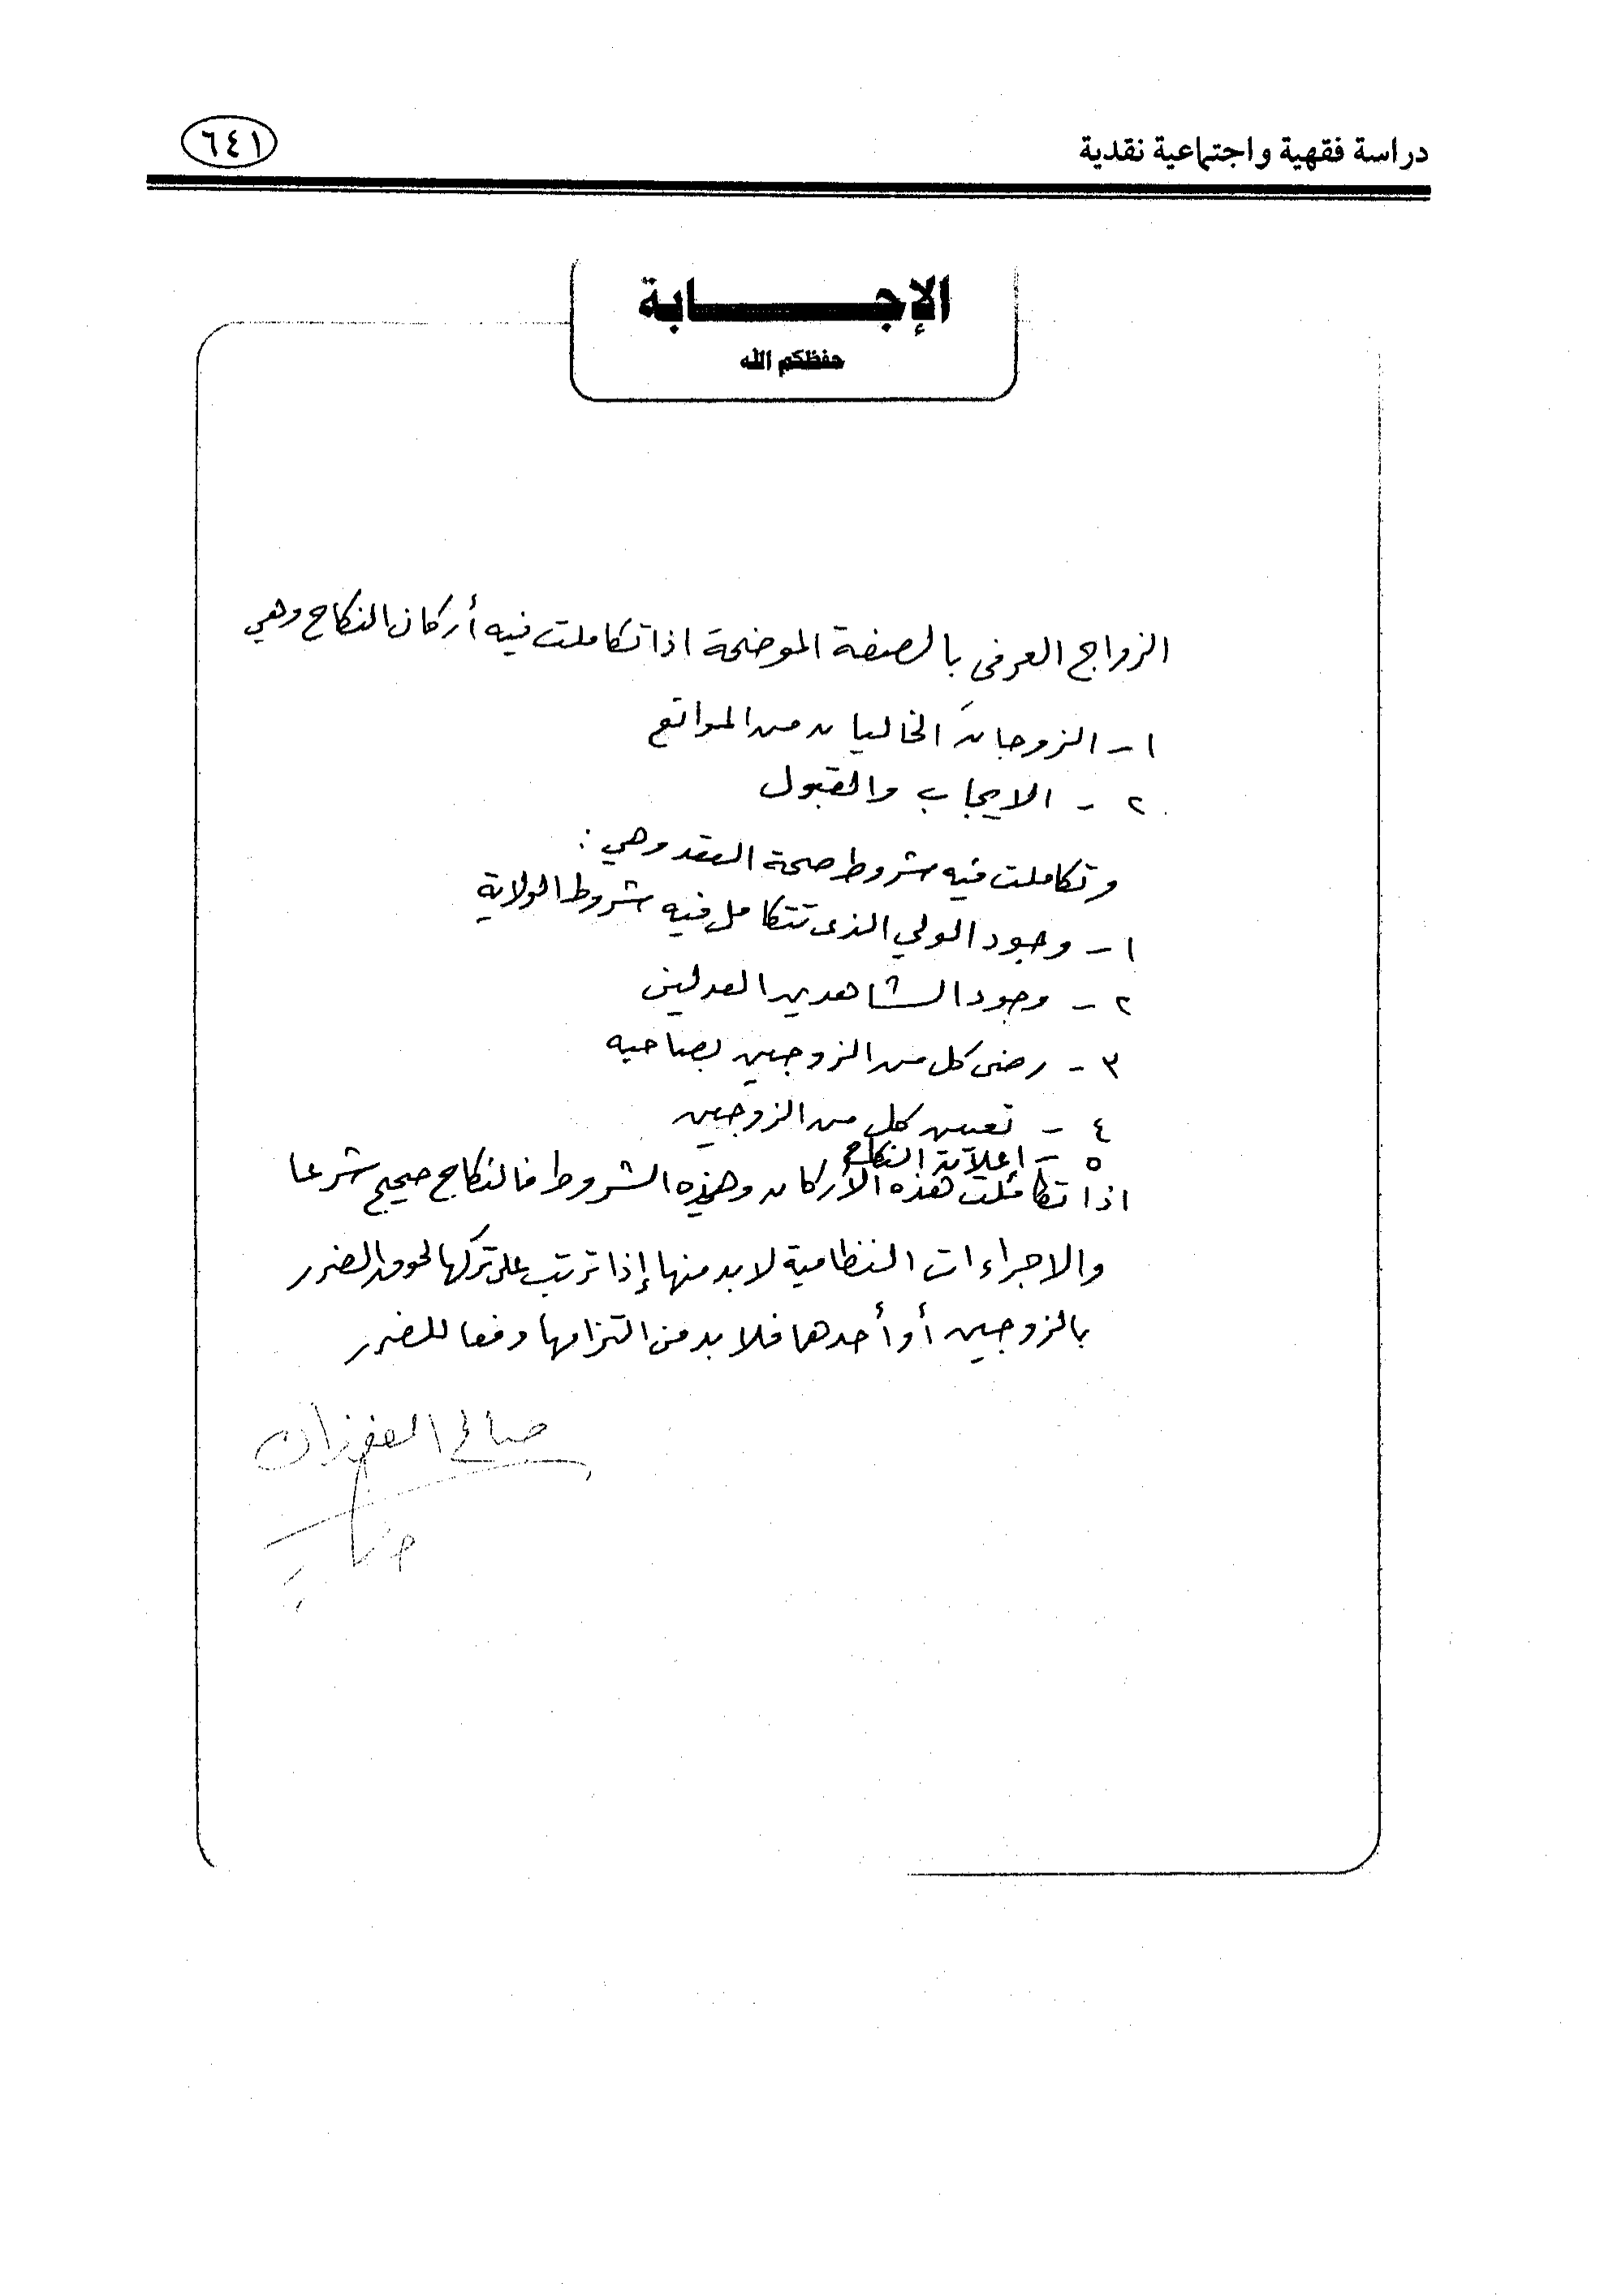 دراسة فقهية واجتماعية نقدية
٦٤١
الإجابة
حفظكم الله
الزواج العرفي بالصفة الموضحة اذا تكاملت فيه أركان النكاح وهي
١ - الزوجان الخاليان من الموانع
٢ - الايجاب والقبول
وتكاملت فيه شروط صحة العقد وهي :
١ - وجود الولي الذي تتكامل فيه شروط الولاية
٢ - وجود الشاهدين العدلين
٣ - رضى كل من الزوجين بصاحبه
٤ - تعيين كل من الزوجين
٥ - إعلان النكاح
اذا تكاملت هذه الأركان وهذه الشروط فالنكاح صحيح شرعا
والاجراءات النظامية لا بد منها إذا ترتب على تركها لحوق الضرر
بالزوجين أو أحدهما فلا بد من التزامها دفعا للضرر
صالح الفوزان